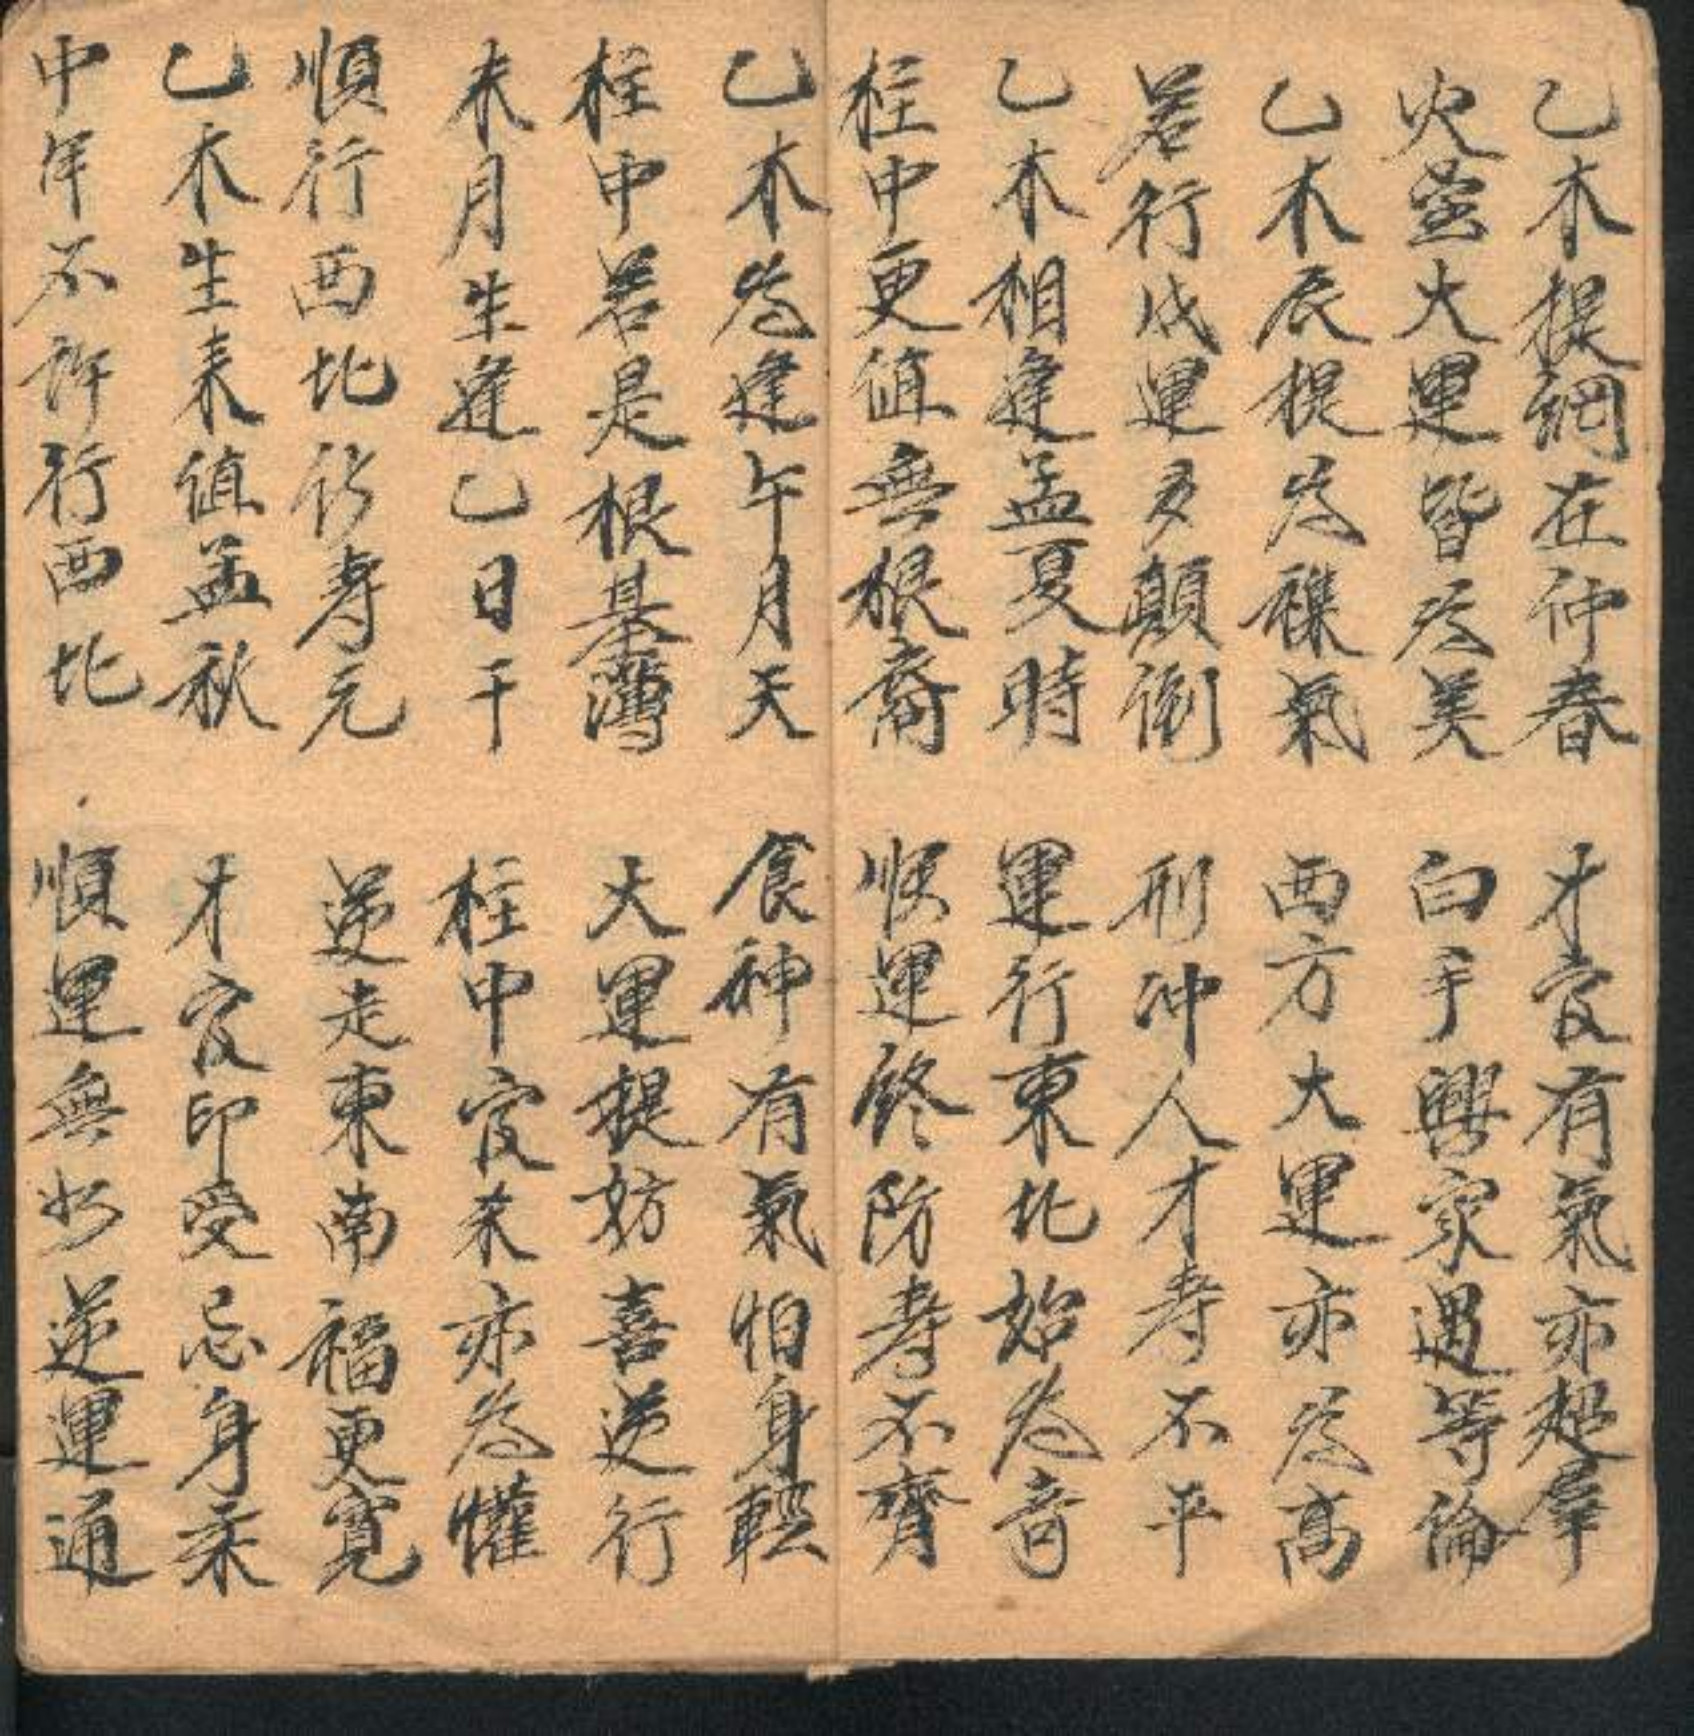 乙木提綱在仲春 才官有氣亦超羣
火金大運皆為美 白手興家過等倫
乙木辰提為雜氣 西方大運亦為高
若行戌運多顛倒 刑冲人才寿不平
乙木相逢孟夏時 運行東北始為奇
柱中更值無根裔 順運終防寿不齊
乙木為逢午月天 食神有氣怕身輕
柱中若是根基薄 大運提妨喜逆行
未月生逢乙日干 柱中官未亦為懽
順行西北折寿元 逆走東南福更寬
乙木生來值孟秋 才官印受忌身柔
中年不許行西北 順運無如逆運通